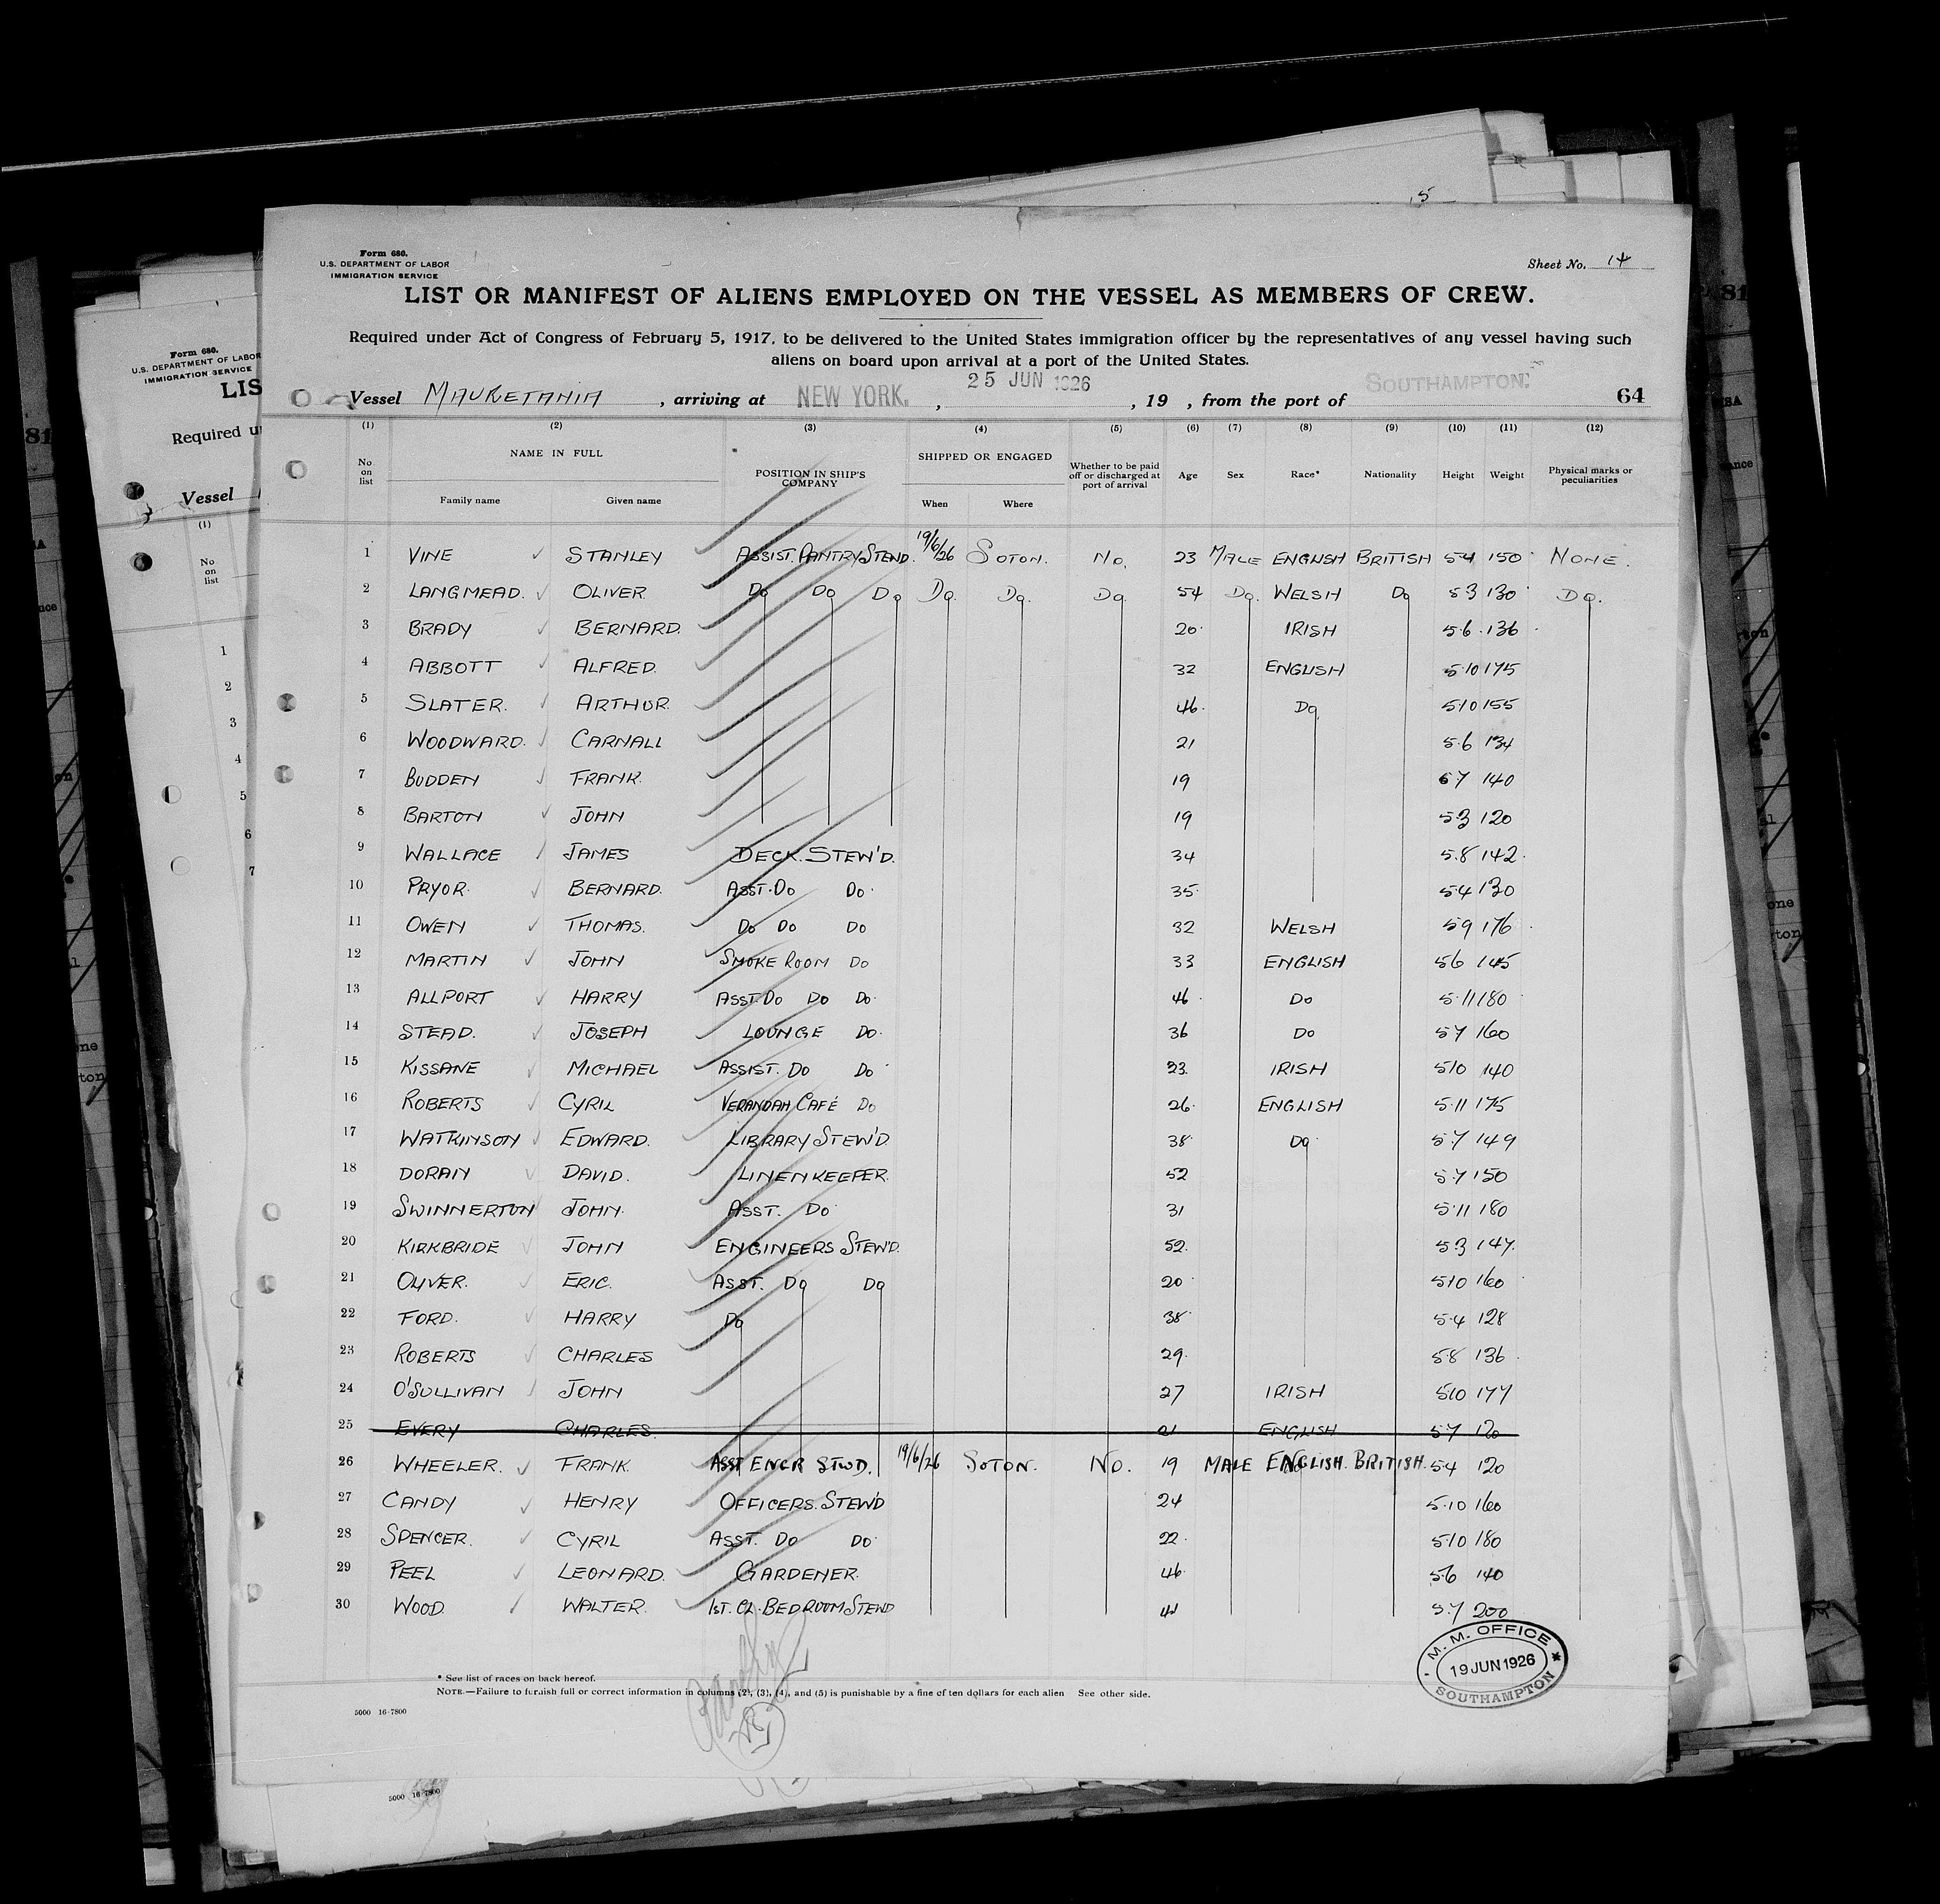 5
Form 680.
U.S. DEPARTMENT OF LABOR
IMMIGRATION SERVICE
Sheet No. 14
LIST OR MANIFEST OF ALIENS EMPLOYED ON THE VESSEL AS MEMBERS OF CREW.
Required under Act of Congress of February 5, 1917, to be delivered to the United States immigration officer by the representatives of any vessel having such
aliens on board upon arrival at a port of the United States.
Vessel MAURETANIA, arriving at NEW YORK, 25 JUN 1926, 19 , from the port of SOUTHAMPTON. 64
(1) (2) (3) (4) (5) (6) (7) (8) (9) (10) (11) (12)
No. on list NAME IN FULL Family name Given name POSITION IN SHIP'S COMPANY SHIPPED OR ENGAGED When Where Whether to be paid off or discharged at port of arrival Age Sex Race* Nationality Height Weight Physical marks or peculiarities
1 VINE STANLEY ASSIST. PANTRY STEWD. 19/6/26 SOTON. NO. 23 MALE ENGLISH BRITISH 5 4 150 NONE.
2 LANGMEAD. OLIVER Do Do Do Do. Do. Do 54 Do. WELSH Do 5 3 130 Do.
3 BRADY BERNARD. 20 IRISH 5.6 136
4 ABBOTT ALFRED. 32 ENGLISH 5 10 175
5 SLATER. ARTHUR. 46 Do 5 10 155
6 WOODWARD. CARNALL 21 5.6 134
7 BUDDEN FRANK. 19 5 7 140
8 BARTON JOHN 19 5 3 120
9 WALLACE JAMES DECK. STEW'D. 34 5.8 142.
10 PRYOR. BERNARD. ASST. Do Do. 35 5 4 130
11 OWEN THOMAS. Do Do Do 32 WELSH 5 9 176
12 MARTIN JOHN SMOKE ROOM Do 33 ENGLISH 5 6 145
13 ALLPORT HARRY ASST. Do Do Do. 46 Do 5.11 180
14 STEAD. JOSEPH LOUNGE Do. 36 Do 5 7 160
15 KISSANE MICHAEL ASSIST. Do Do 23. IRISH 5 10 140
16 ROBERTS CYRIL VERANDAH CAFÉ Do 26. ENGLISH 5.11 175
17 WATKINSON EDWARD. LIBRARY STEW'D 38 Do 5.7 149
18 DORAN DAVID. LINENKEEPER. 52 5.7 150
19 SWINNERTON JOHN. ASST. Do 31 5.11 180
20 KIRKBRIDE JOHN ENGINEERS STEW'D. 52. 5 3 147.
21 OLIVER. ERIC. ASST. Do Do 20 5 10 160
22 FORD. HARRY Do 38 5.4 128
23 ROBERTS CHARLES 29. 5.8 136
24 O'SULLIVAN JOHN 27 IRISH 5 10 177
25 EVERY CHARLES. 21 ENGLISH 5 7 120
26 WHEELER. FRANK. ASST ENGR STWD. 19/6/26 SOTON. NO. 19 MALE ENGLISH. BRITISH. 5 4 120
27 CANDY HENRY OFFICERS. STEW'D 24 5.10 160
28 SPENCER. CYRIL ASST. Do Do. 22. 5 10 180
29 PEEL LEONARD. GARDENER. 46. 5 6 140
30 WOOD. WALTER. 1ST. CL. BEDROOM STEWD 5.7 200
M. M. OFFICE
19 JUN 1926
SOUTHAMPTON
* See list of races on back hereof.
NOTE.—Failure to furnish full or correct information in columns (2), (3), (4), and (5) is punishable by a fine of ten dollars for each alien See other side.
5000 16-7800
5000 16-7800
Form 680.
U.S. DEPARTMENT OF LABOR
IMMIGRATION SERVICE
LIS
Required u
Vessel
(1)
No on list
1
2
3
4
5
6
7